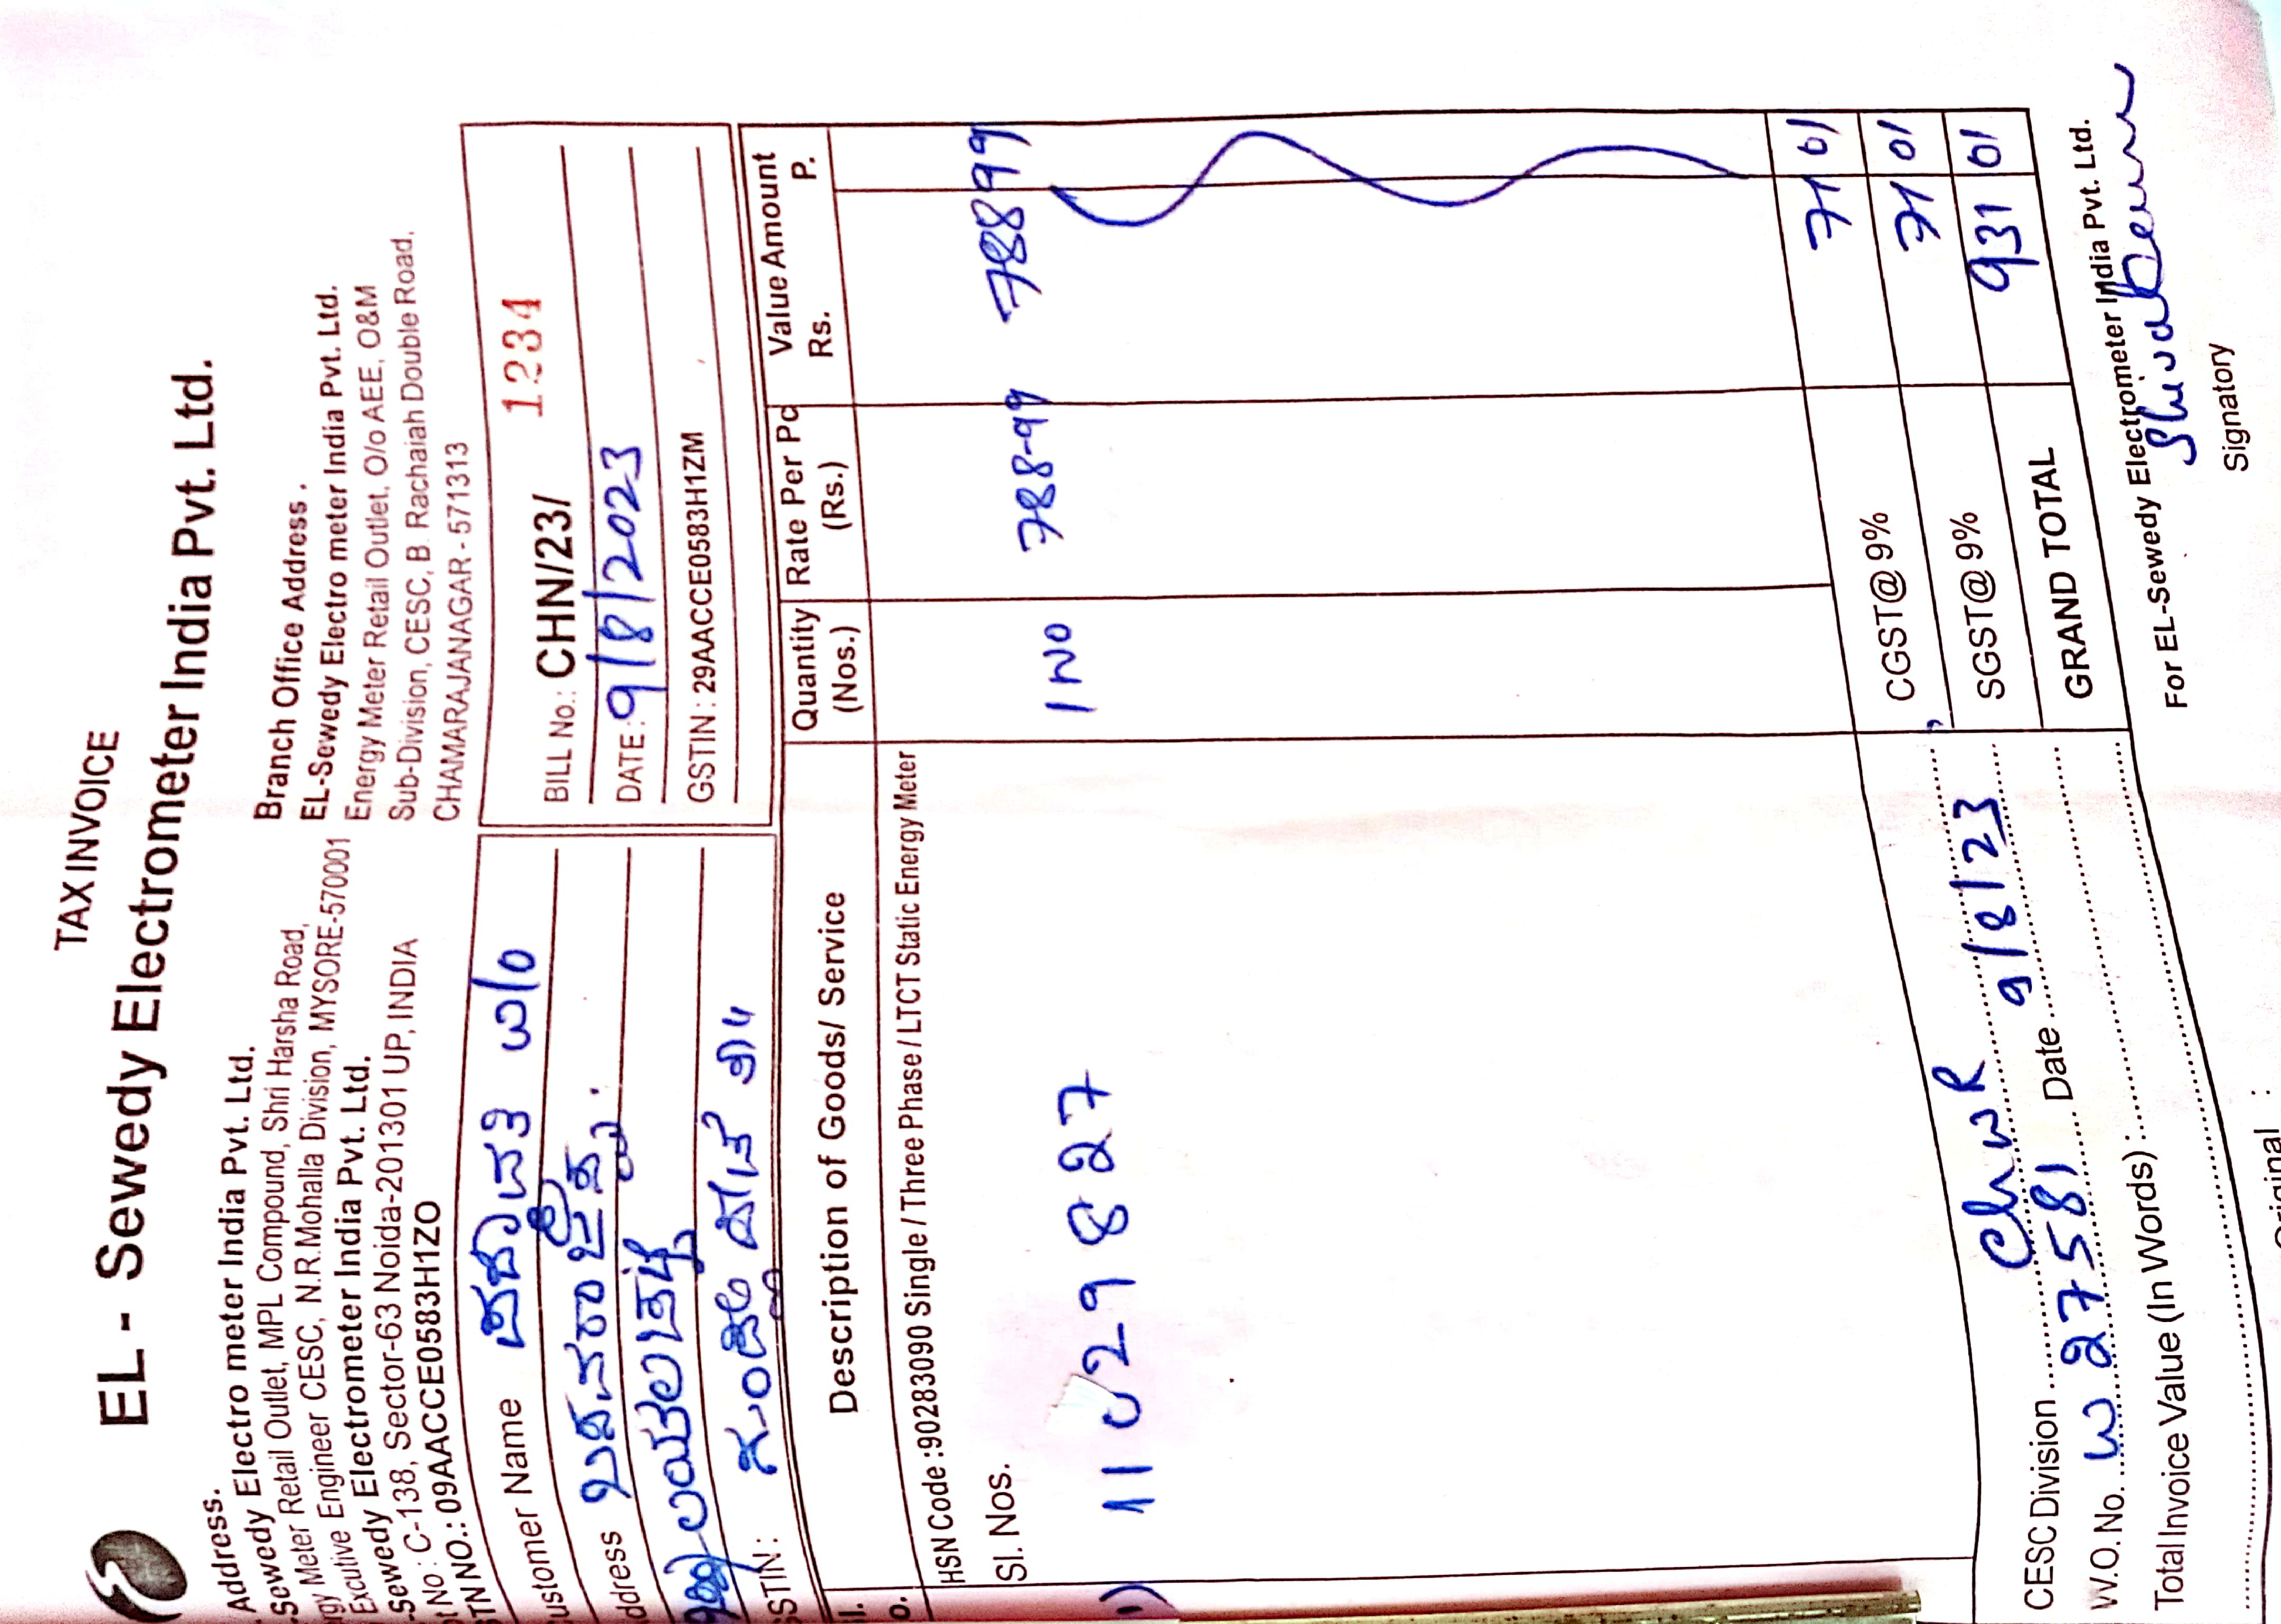 TAX INVOICE
EL - Sewedy Electrometer India Pvt. Ltd.
Address.
Sewedy Electro meter India Pvt. Ltd.
Meter Retail Outlet, MPL Compound, Shri Harsha Road,
Excutive Engineer CESC, N.R.Mohalla Division, MYSORE-570001
Sewedy Electrometer India Pvt. Ltd.
No : C-138, Sector-63 Noida-201301 UP, INDIA
NO.: 09AACCE0583H1ZO
Branch Office Address .
EL-Sewedy Electro meter India Pvt. Ltd.
Energy Meter Retail Outlet, O/o AEE, O&M
Sub-Division, CESC, B. Rachaiah Double Road,
CHAMARAJANAGAR - 571313
ustomer Name W/O
ddress
STIN :
BILL No.: CHN/23/ 1234
DATE : 9/8/2023
GSTIN : 29AACCE0583H1ZM
Description of Goods/ Service Quantity (Nos.) Rate Per Pc (Rs.) Value Amount Rs. P.
HSN Code :90283090 Single / Three Phase / LTCT Static Energy Meter
Sl. Nos.
1) 11029827 1 NO 788-99 788 99
CGST@9% 71 01
SGST@9% 71 01
GRAND TOTAL 931 01
CESC Division
W.O. No. W 27581 Date 9/8/23
Total Invoice Value (In Words) :
For EL-Sewedy Electrometer India Pvt. Ltd.
Signatory